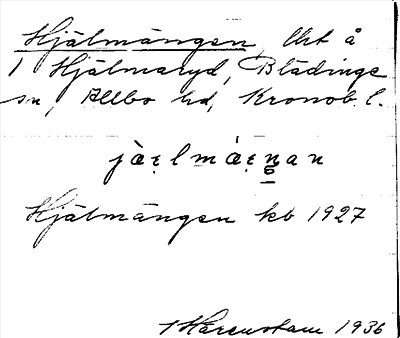 Hjälmängen, Uht å
1 Hjälmaryd, Blädinge
sn, Allbo hd, Kronob. l.
jàɛ̣lmáɛ̣nan
Hjälmängen kb 1927
Harenstam 1936